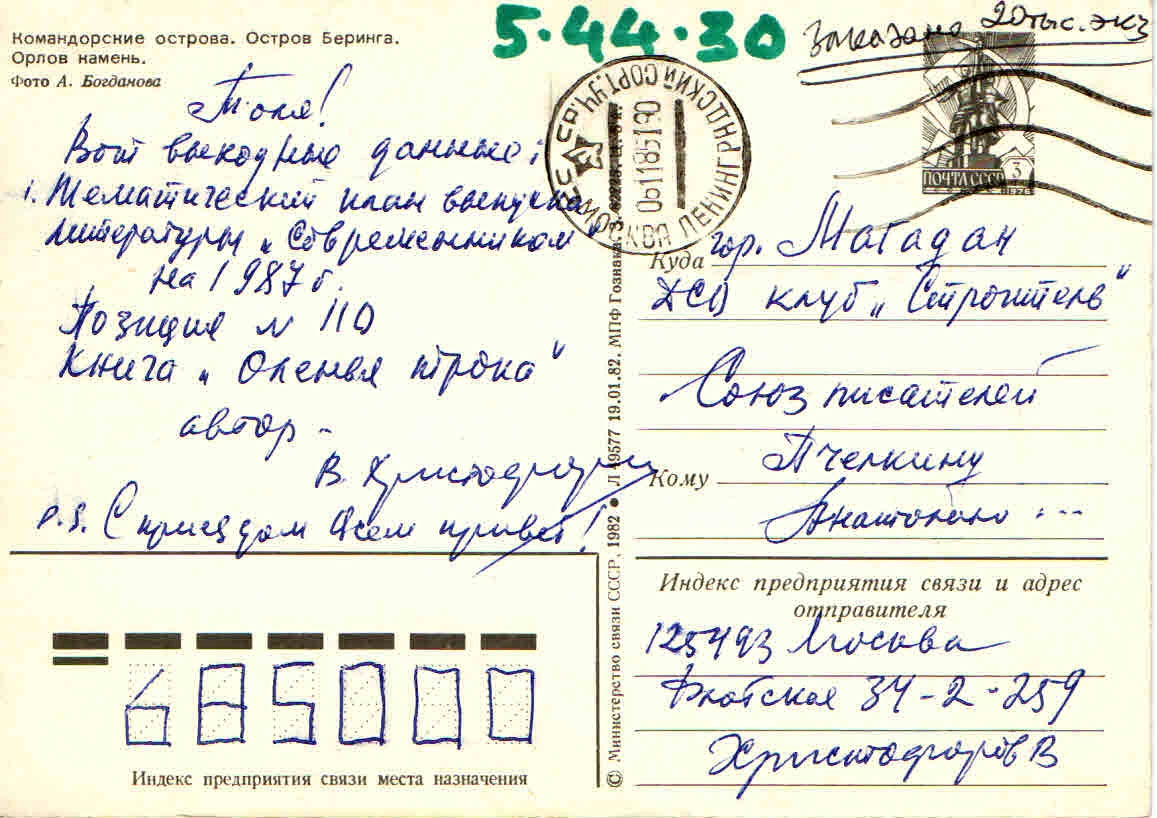 Командорские острова. Остров Беринга.
Орлов камень.
Фото А. Богданова
5·44·30
Заказано 20 тыс. экз
Толя!
Вот выходные данные:
1. Тематический план выпуска
литературы „Современником"
на 1987 г.
Позиция № 110
Книга „Оленья тропа"
автор –
В. Христофоров
P.S. С приездом Всем привет!
СССР МОСКВА ЛЕНИНГРАДСКИЙ СОРТ.УЧ.
061185190
ПОЧТА СССР 3
1976
Куда гор. Магадан
ДСО клуб „Строитель"
Союз писателей
Кому Пчелкину
Анатолию ...
Индекс предприятия связи и адрес
отправителя
125493 Москва
Флотская 34-2-259
Христофоров В
685000
Индекс предприятия связи места назначения
© Министерство связи СССР, 1982 ● Л 49577 19.01.82. МПФ Гознака.